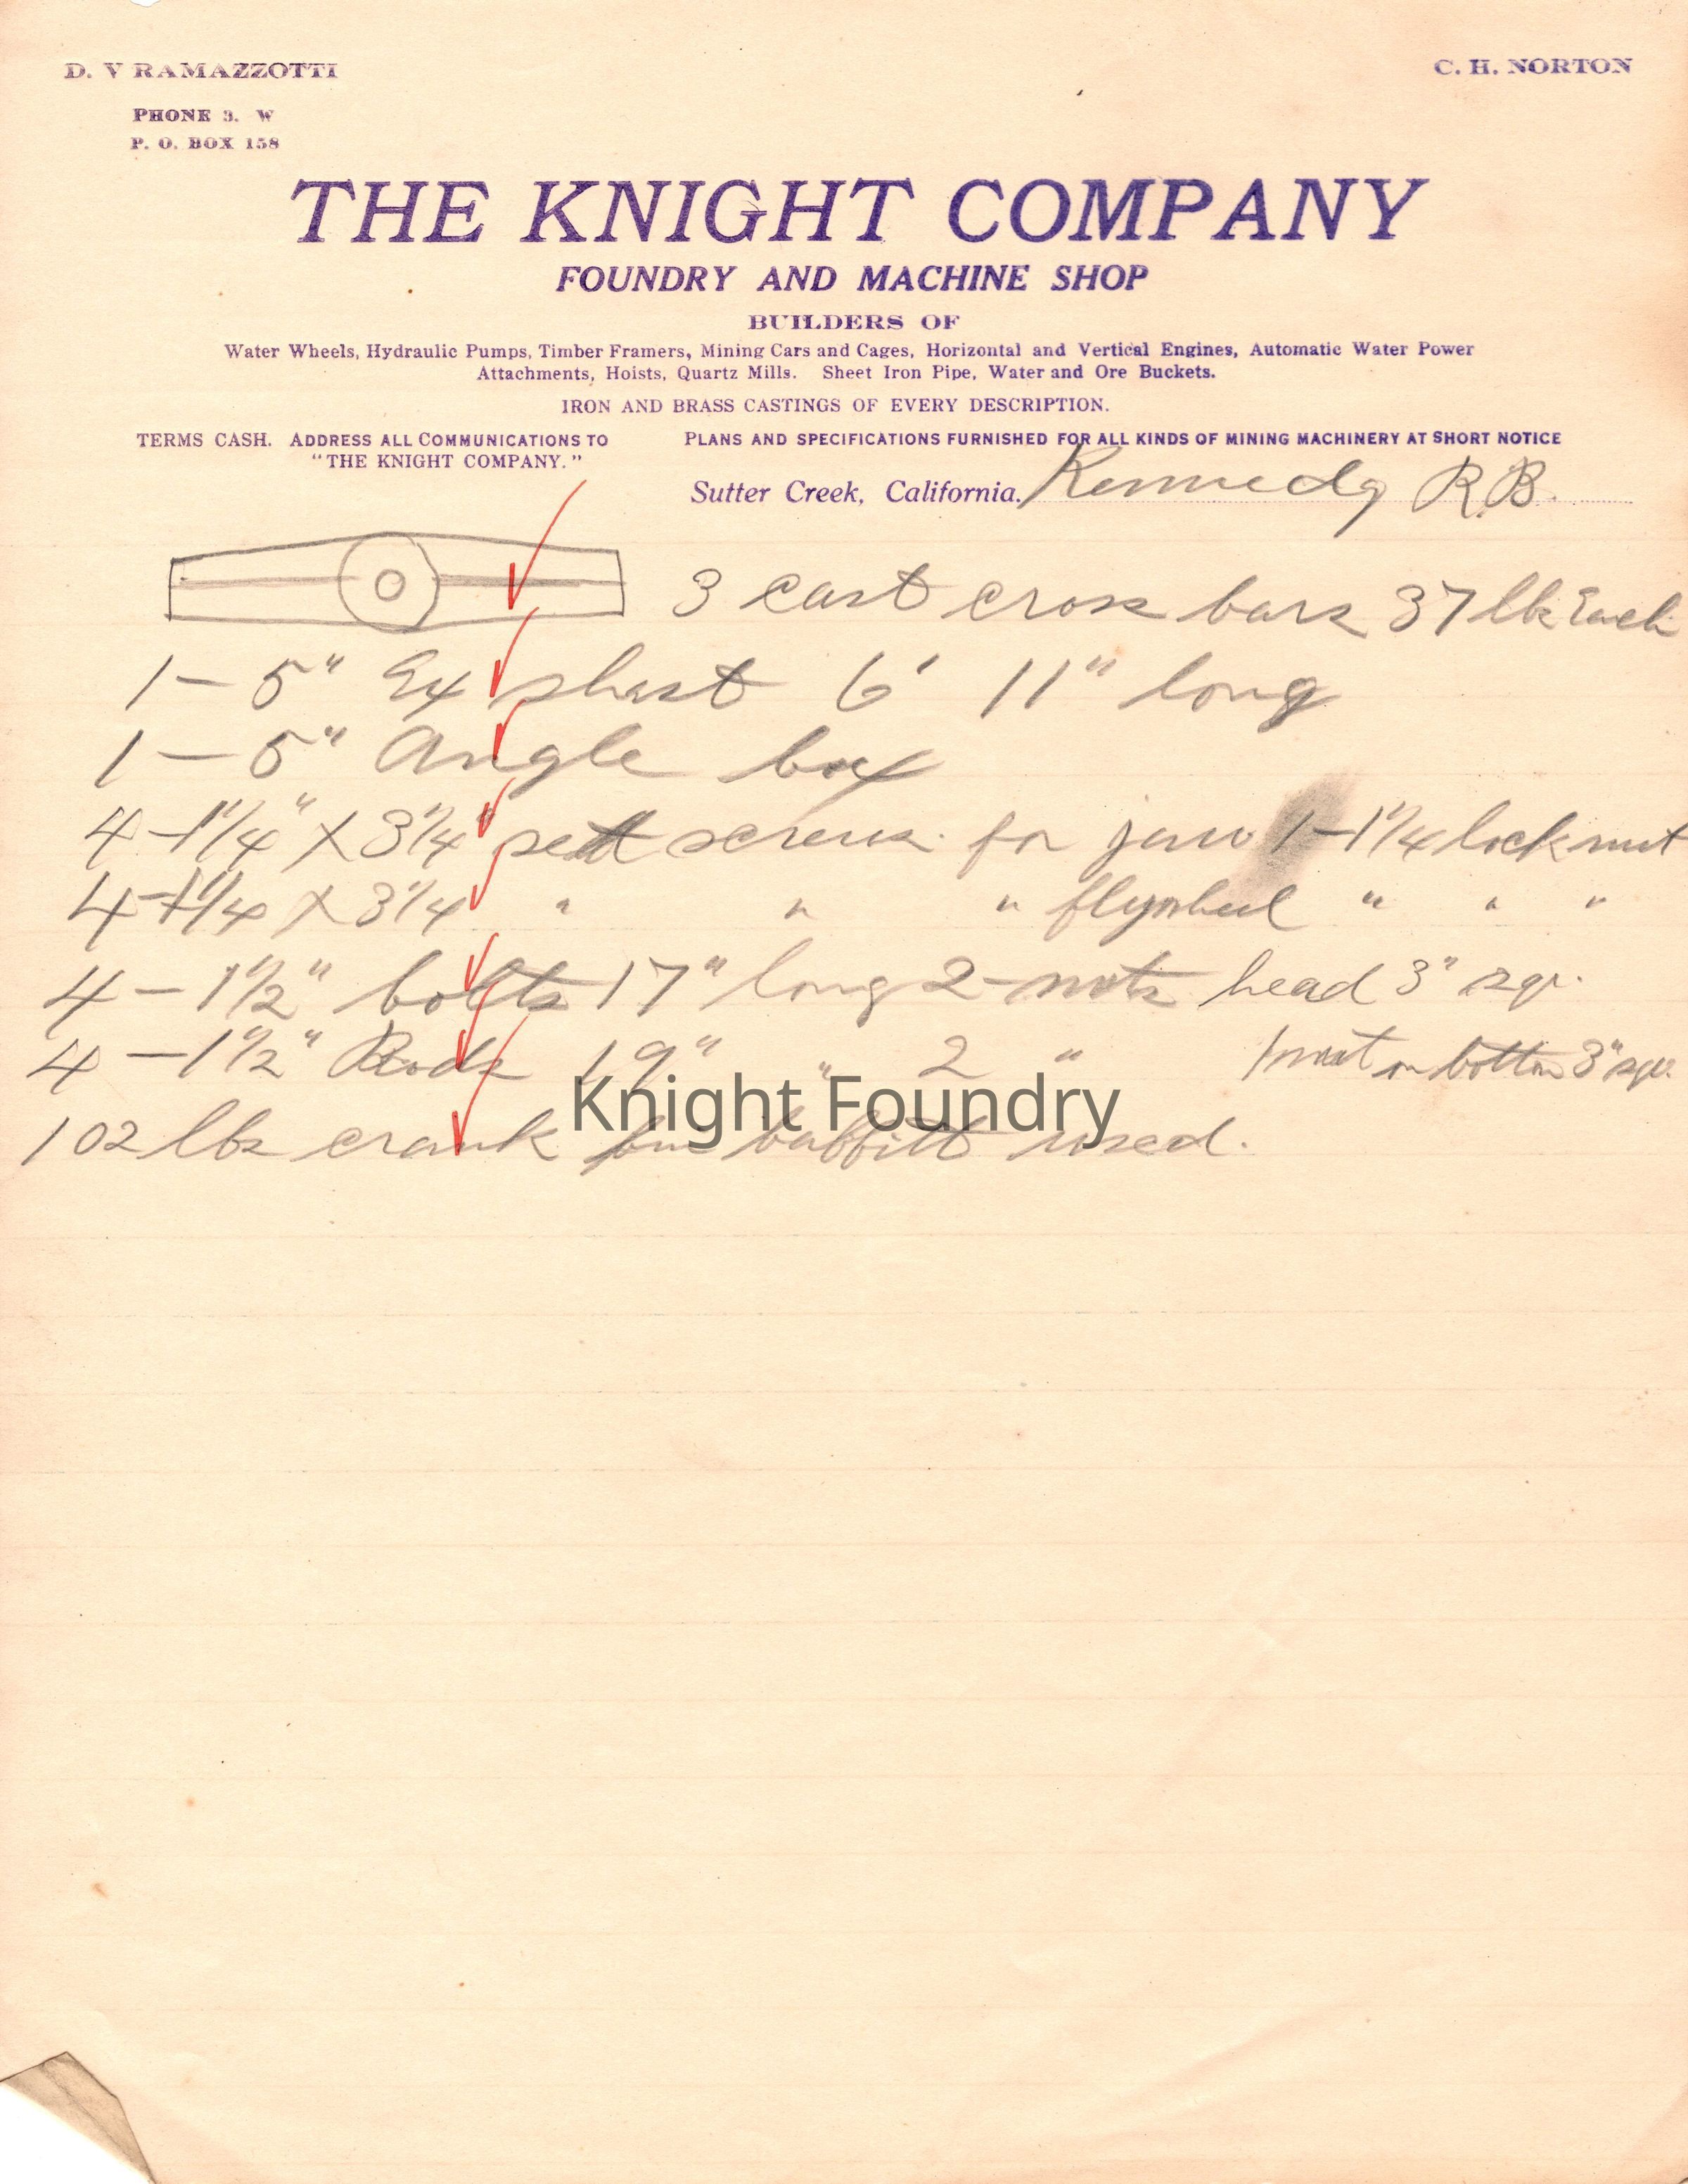 D. V RAMAZZOTTI
C. H. NORTON
PHONE 3. W
P. O. BOX 158
THE KNIGHT COMPANY
FOUNDRY AND MACHINE SHOP
BUILDERS OF
Water Wheels, Hydraulic Pumps, Timber Framers, Mining Cars and Cages, Horizontal and Vertical Engines, Automatic Water Power
Attachments, Hoists, Quartz Mills. Sheet Iron Pipe, Water and Ore Buckets.
IRON AND BRASS CASTINGS OF EVERY DESCRIPTION.
TERMS CASH. ADDRESS ALL COMMUNICATIONS TO
"THE KNIGHT COMPANY."
PLANS AND SPECIFICATIONS FURNISHED FOR ALL KINDS OF MINING MACHINERY AT SHORT NOTICE
Sutter Creek, California. Kennedy R.B.
3 cast cross bars 37 lbs Each
1 — 5" Ex shast 6' 11" long
1 — 5" Angle box
4 - 1 1/4" X 3 1/4" sett screws for jaw 1 - 1 1/4 lock nut
4 - 1 1/4 X 3 1/4 " " " flywheel " " "
4 — 1 1/2" bolts 17" long 2 - nuts head 3" sqr.
4 — 1 1/2" Rods 19" " 2 " 1 nut on bottom 3" sqr.
102 lbs crank babbitt used.
Knight Foundry